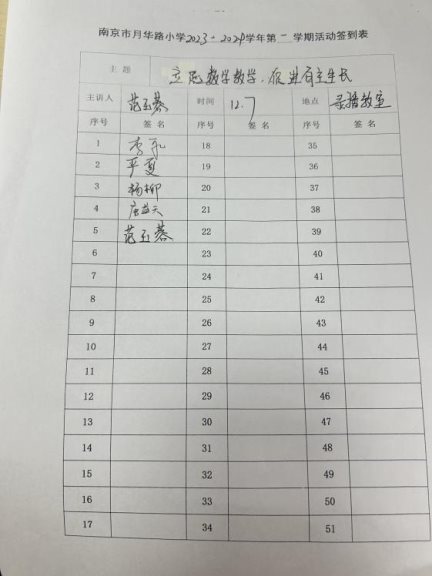 南京市月华路小学2023-2024学年第一学期活动签到表
主 题 立足数学教学，促进自主生长
主讲人 范玉蓉 时间 12.7 地点 录播教室
序号 签 名 序号 签 名 序号 签 名
1 李 18 35
2 平夏 19 36
3 杨柳 20 37
4 唐益天 21 38
5 范玉蓉 22 39
6 23 40
7 24 41
8 25 42
9 26 43
10 27 44
11 28 45
12 29 46
13 30 47
14 31 48
15 32 49
16 33 50
17 34 51